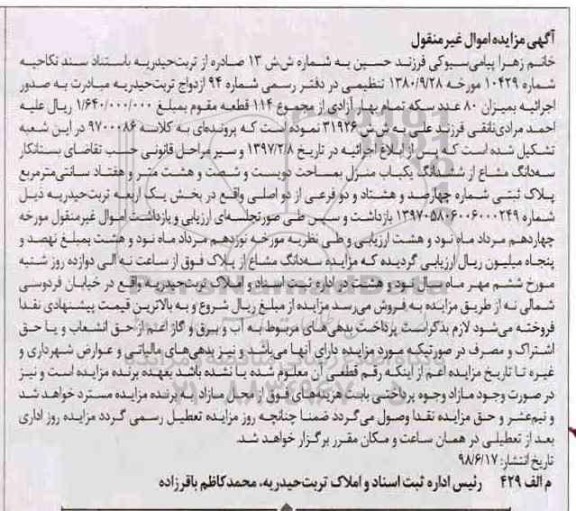 آگهی مزایده اموال غیر منقول
خانم زهرا پیامی‌سیوکی فرزند حسین به شماره ش ش ۱۳ صادره از تربت‌حیدریه باستناد سند نکاحیه
شماره ۱۰۴۲۹ مورخه ۱۳۸۰/۹/۲۸ تنظیمی در دفتر رسمی شماره ۹۴ ازدواج تربت‌حیدریه مبادرت به صدور
اجرائیه بمیزان ۸۰ عدد سکه تمام بهار آزادی از مجموع ۱۱۴ قطعه مقوم بمبلغ ۱/۶۴۰/۰۰۰/۰۰۰ ریال علیه
احمد مرادی‌نائقی فرزند علی به ش ش ۳۱۹۲۶ نموده است که پرونده‌ای به کلاسه ۹۷۰۰۰۸۶ در این شعبه
تشکیل شده است که پس از ابلاغ اجرائیه در تاریخ ۱۳۹۷/۲/۸ و سیر مراحل قانونی حسب تقاضای بستانکار
سه‌دانگ مشاع از ششدانگ یکباب منزل بمساحت دویست و شصت و هشت متر و هفتاد سانتی‌مترمربع
پلاک ثبتی شماره چهارصد و هشتاد و دو فرعی از دو اصلی واقع در بخش یک اربعه تربت‌حیدریه ذیل
شماره ۱۳۹۷۰۵۸۰۶۰۰۶۰۰۰۲۴۹ بازداشت و سپس طی صورتجلسه‌ای ارزیابی و بازداشت اموال غیرمنقول مورخه
چهاردهم مرداد ماه نود و هشت ارزیابی و طی نظریه مورخه نوزدهم مرداد ماه نود و هشت بمبلغ نهصد و
پنجاه میلیون ریال ارزیابی گردیده که مزایده سه‌دانگ مشاع از پلاک فوق از ساعت نه الی دوازده روز شنبه
مورخ ششم مهر ماه سال نود و هشت در اداره ثبت اسناد و املاک تربت‌حیدریه واقع در خیابان فردوسی
شمالی نه از طریق مزایده به فروش می‌رسد مزایده از مبلغ ریال شروع و به بالاترین قیمت پیشنهادی نقدا
فروخته می‌شود لازم بذکر است پرداخت بدهی‌های مربوط به آب و برق و گاز اعم از حق انشعاب و یا حق
اشتراک و مصرف در صورتیکه مورد مزایده دارای آنها می‌باشد و نیز بدهی‌های مالیاتی و عوارض شهرداری و
غیره تا تاریخ مزایده اعم از اینکه رقم قطعی آن معلوم شده یا نشده باشد بعهده برنده مزایده است و نیز
در صورت وجود مازاد وجوه پرداختی بابت هزینه‌های فوق از محل مازاد به برنده مزایده مسترد خواهد شد
و نیم‌عشر و حق مزایده نقدا وصول می‌گردد ضمنا چنانچه روز مزایده تعطیل رسمی گردد مزایده روز اداری
بعد از تعطیلی در همان ساعت و مکان مقرر برگزار خواهد شد.
تاریخ انتشار: ۹۸/۶/۱۷
م الف ۴۲۹ رئیس اداره ثبت اسناد و املاک تربت‌حیدریه، محمدکاظم باقرزاده